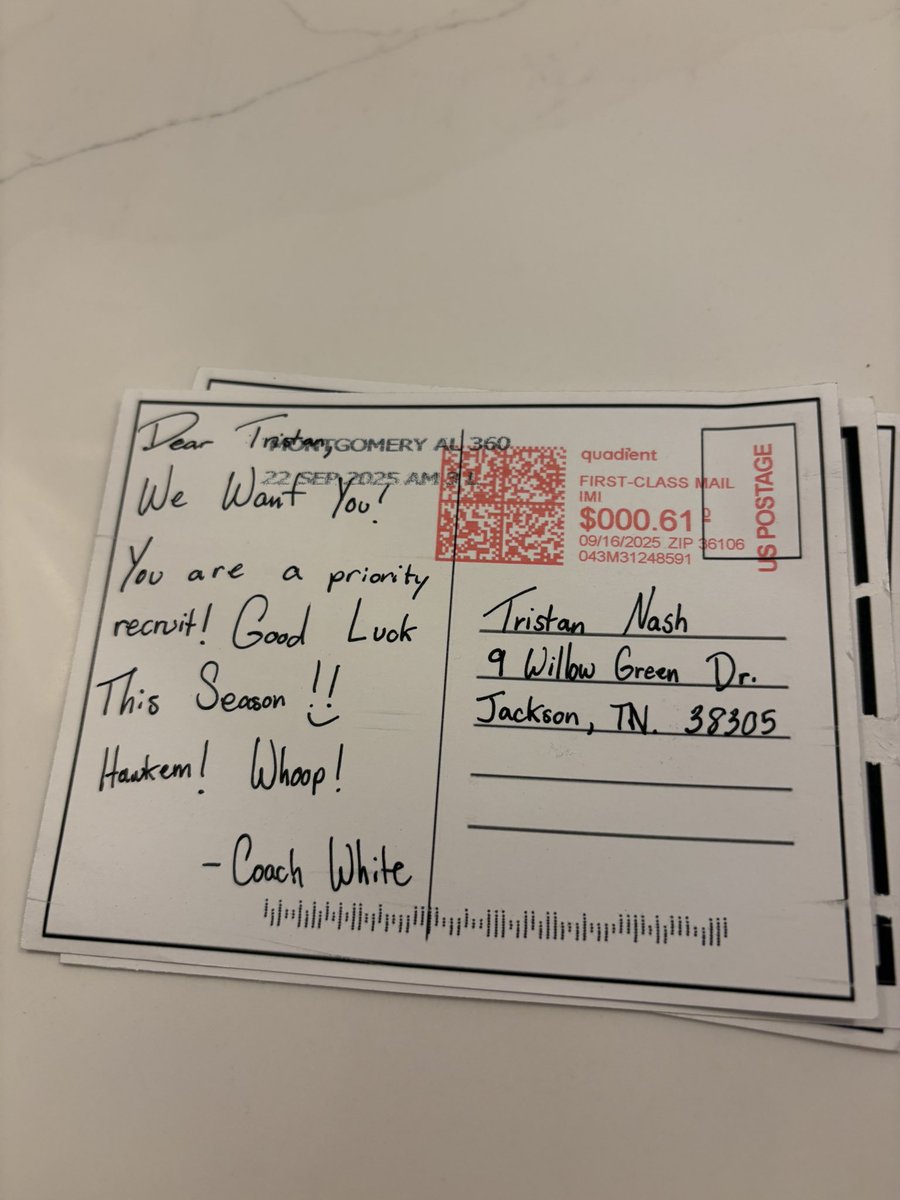 Dear Tristan,
We Want You!
You are a priority
recruit! Good Luck
This Season !!
Hawkem! Whoop!
- Coach White
MONTGOMERY AL 360
22 SEP 2025 AM
quadient
FIRST-CLASS MAIL
IMI
$000.61⁰
09/16/2025 ZIP 36106
043M31248591
US POSTAGE
Tristan Nash
9 Willow Green Dr.
Jackson, TN. 38305